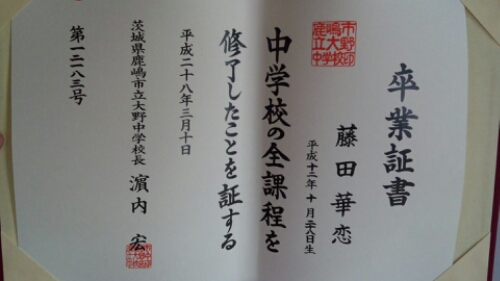 卒業証書
鹿嶋市
立大野
中学校印
藤田華恋
平成十二年十月二十八日生
中学校の全課程を
修了したことを証する
平成二十八年三月十日
茨城県鹿嶋市立大野中学校長 濵内 宏
第一二八三号